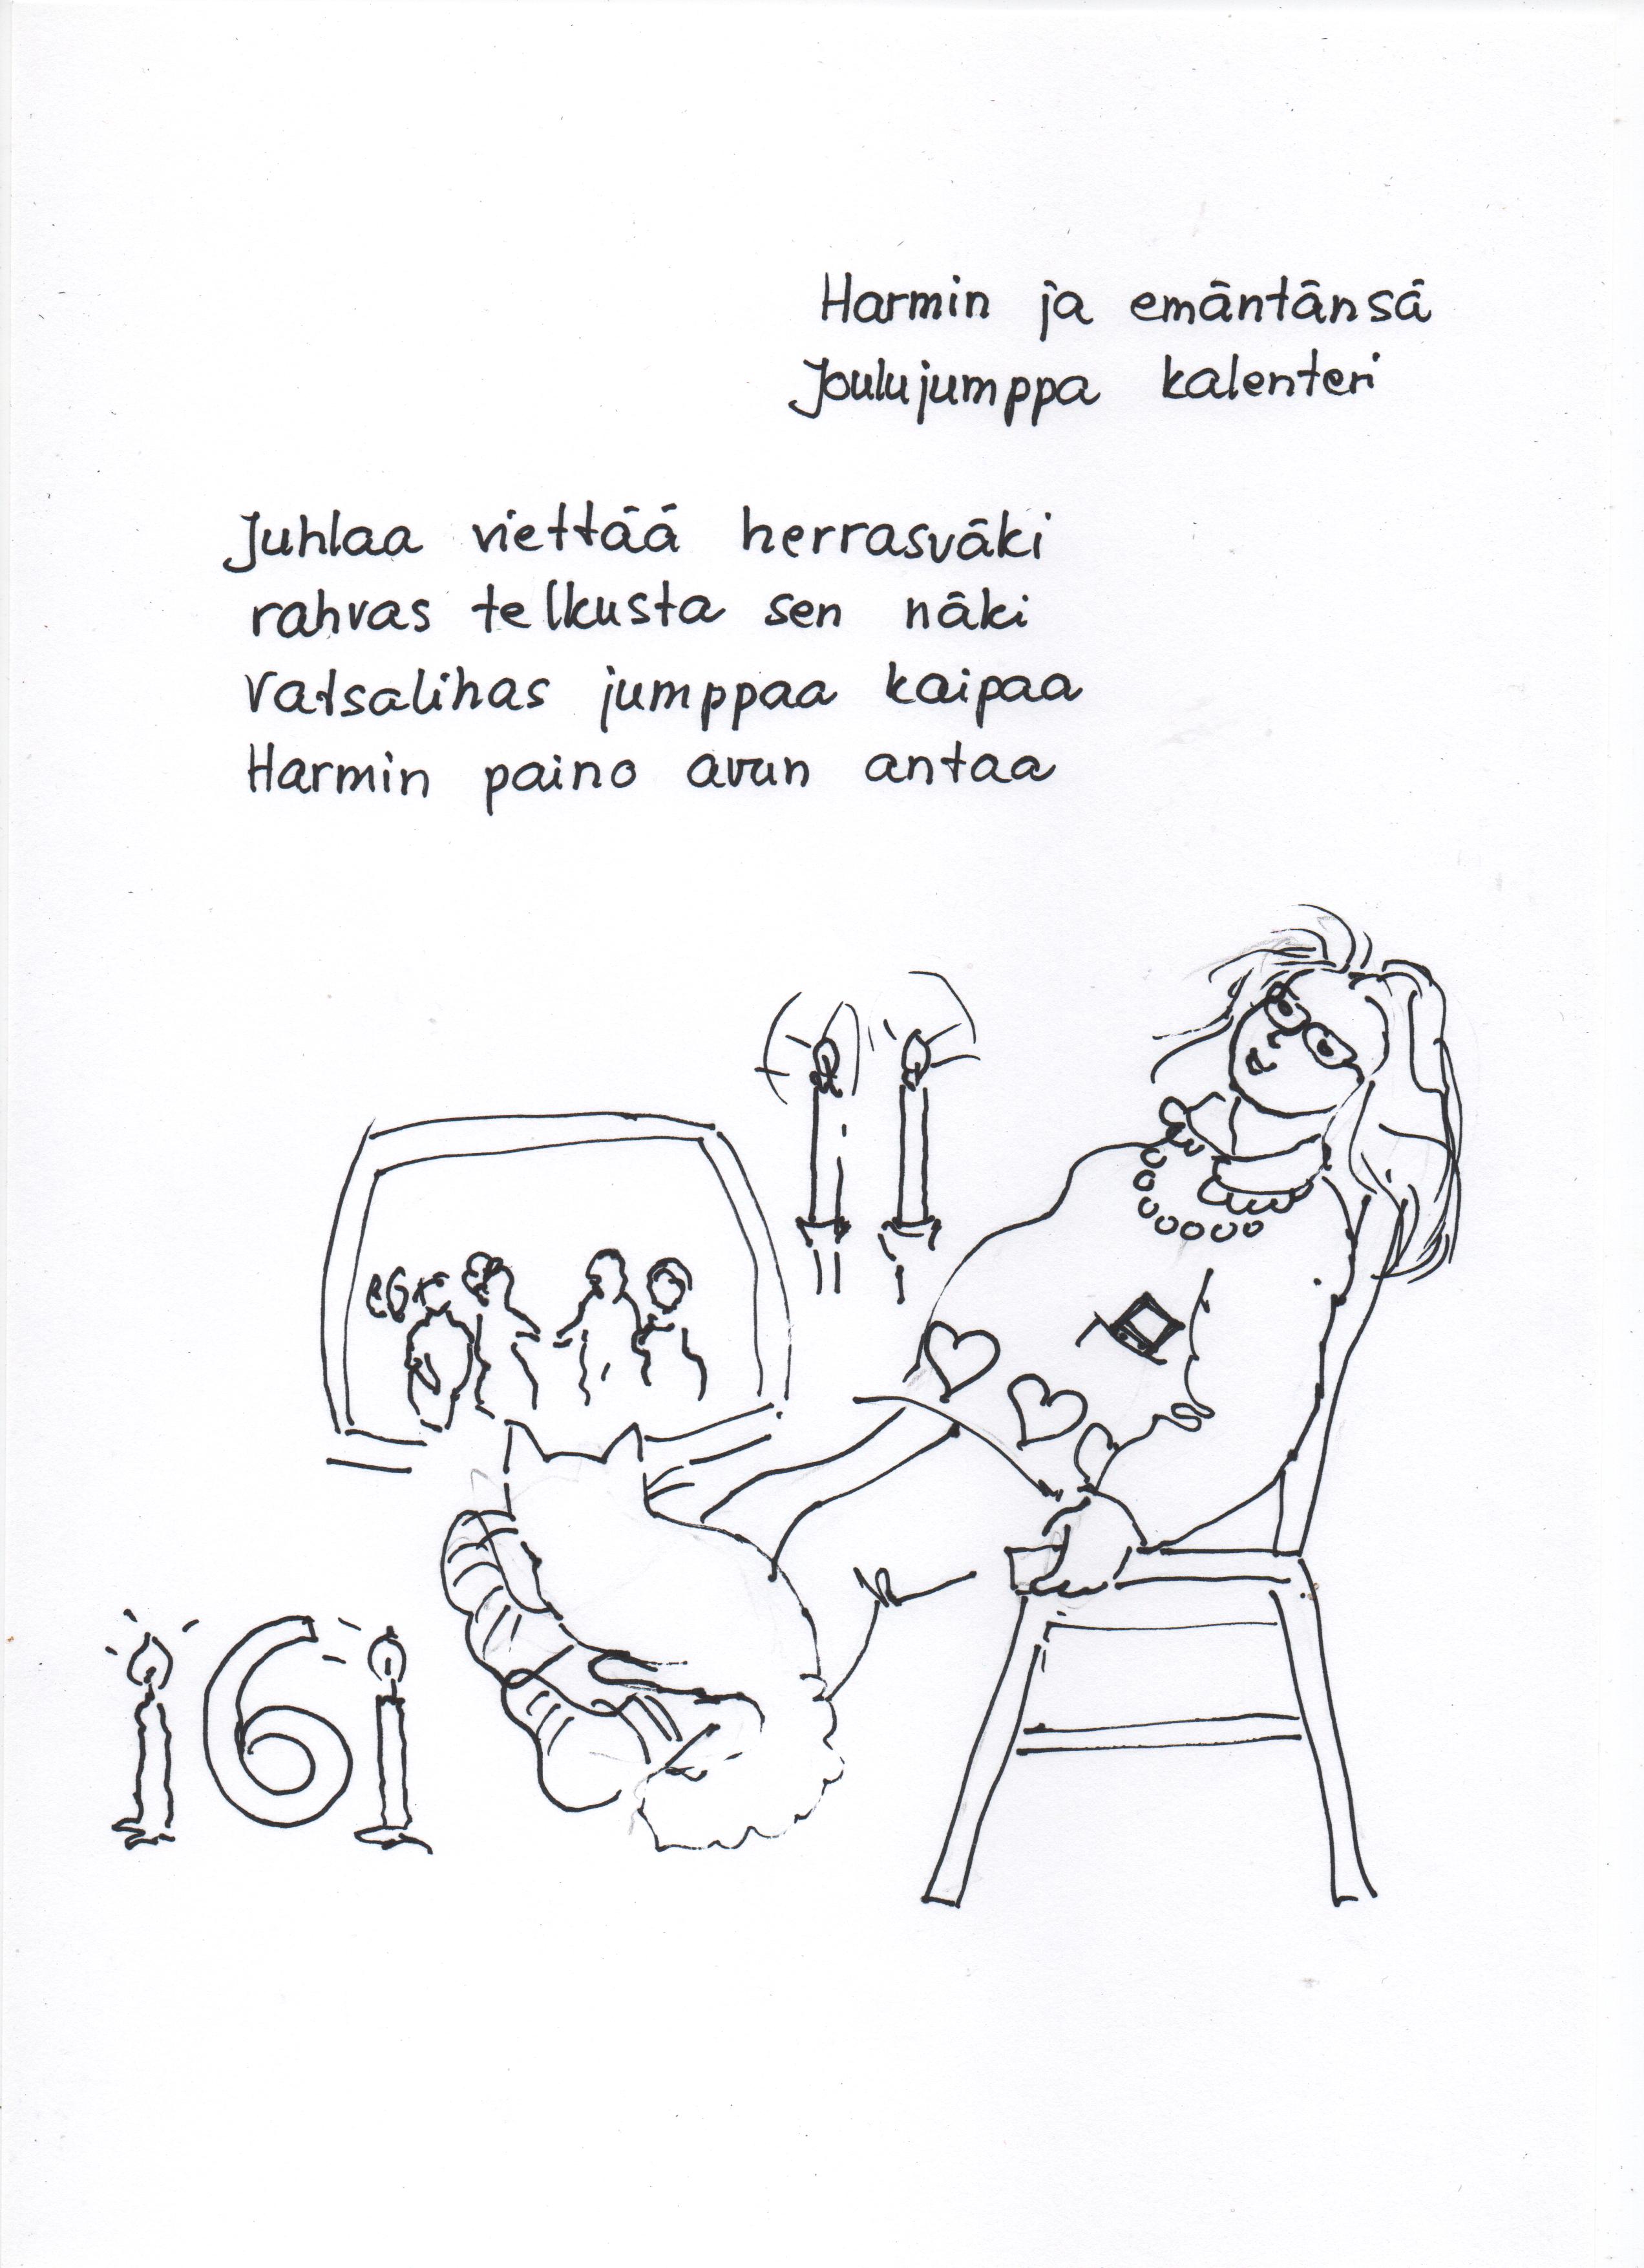 Harmin ja emäntänsä
Joulujumppa kalenteri
Juhlaa viettää herrasväki
rahvas telkusta sen näki
Vatsalihas jumppaa kaipaa
Harmin paino avun antaa
6